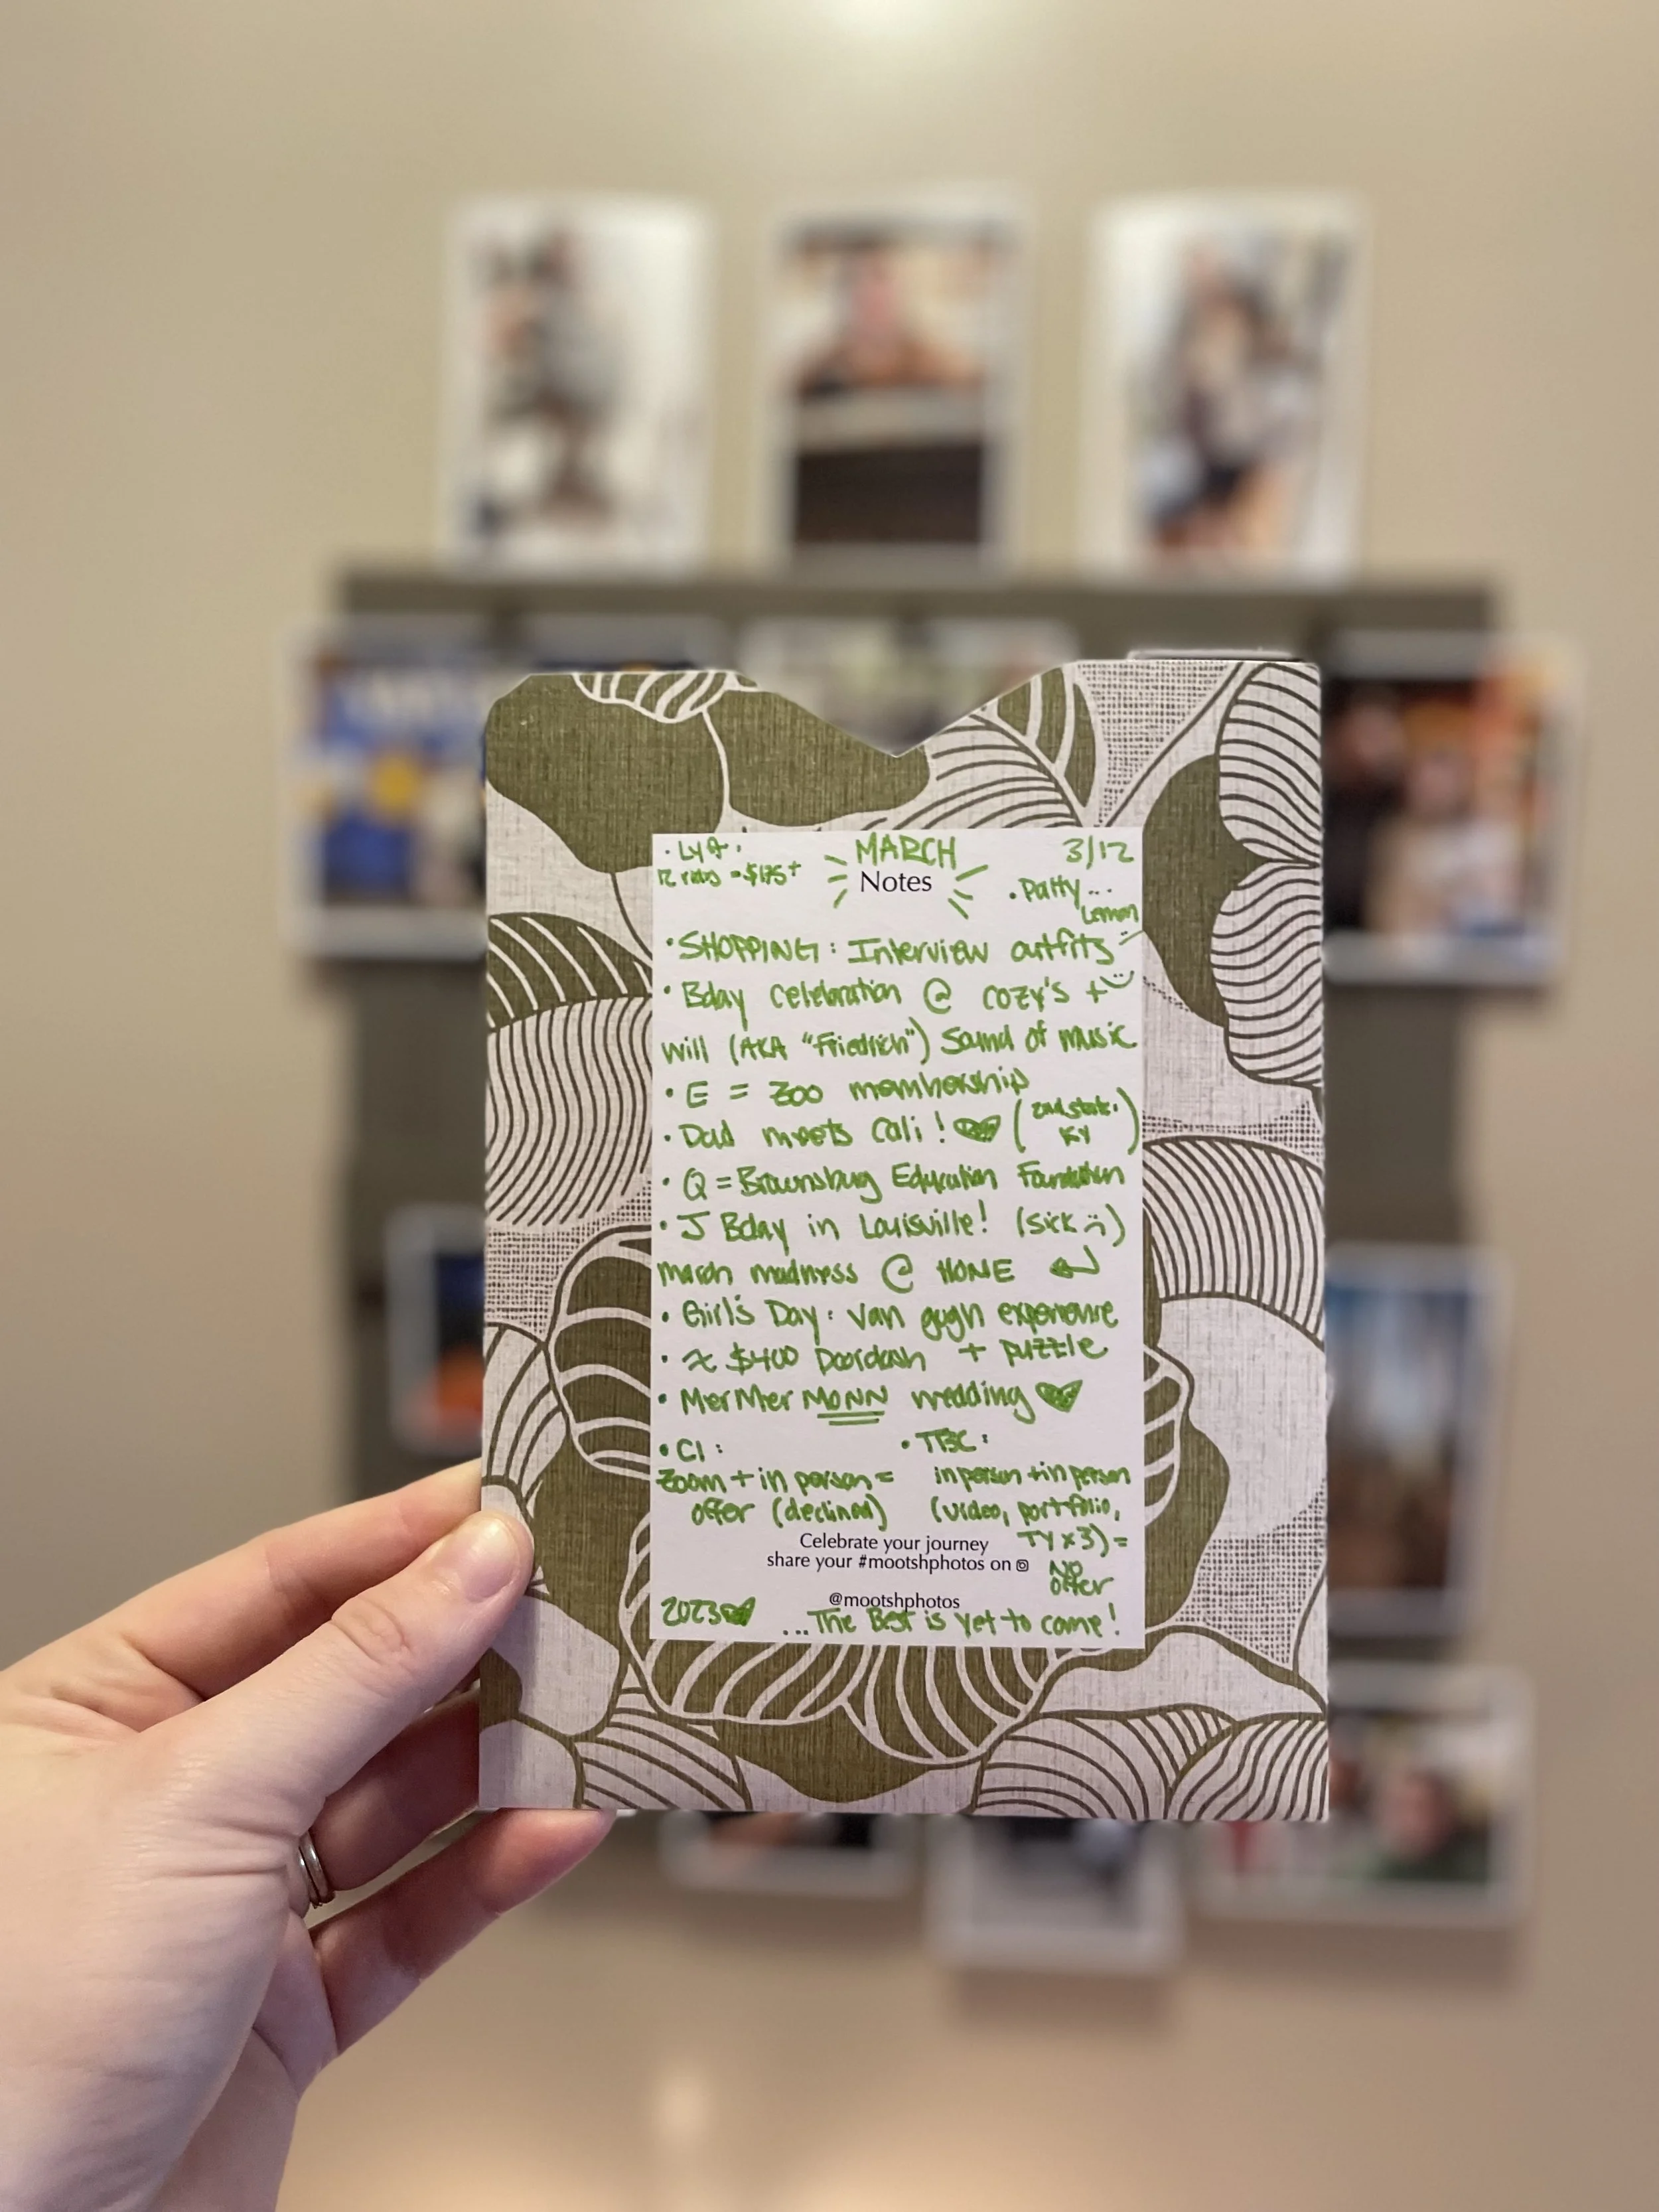 • Lyft:
12 rides = $175+
MARCH
Notes
3/12
• Patty...
Lemon
• SHOPPING: Interview outfits
• Bday celebration @ cozy's +
Will (AKA "Friedrich") Sound of Music
• E = Zoo membership
• Dad meets Cali! (2nd state: KY)
• Q = Brownsburg Education Foundation
• J Bday in Louisville! (sick :()
March madness @ HOME
• Girl's Day: Van gogh experience
+ puzzle
• ≈ $400 Doordash
• MerMer MONN wedding
• CI:
Zoom + in person =
offer (declined)
• TBC:
in person + in person
(video, portfolio,
TY x 3) =
NO
offer
Celebrate your journey
share your #mootshphotos on
@mootshphotos
2023
...The Best is yet to come!